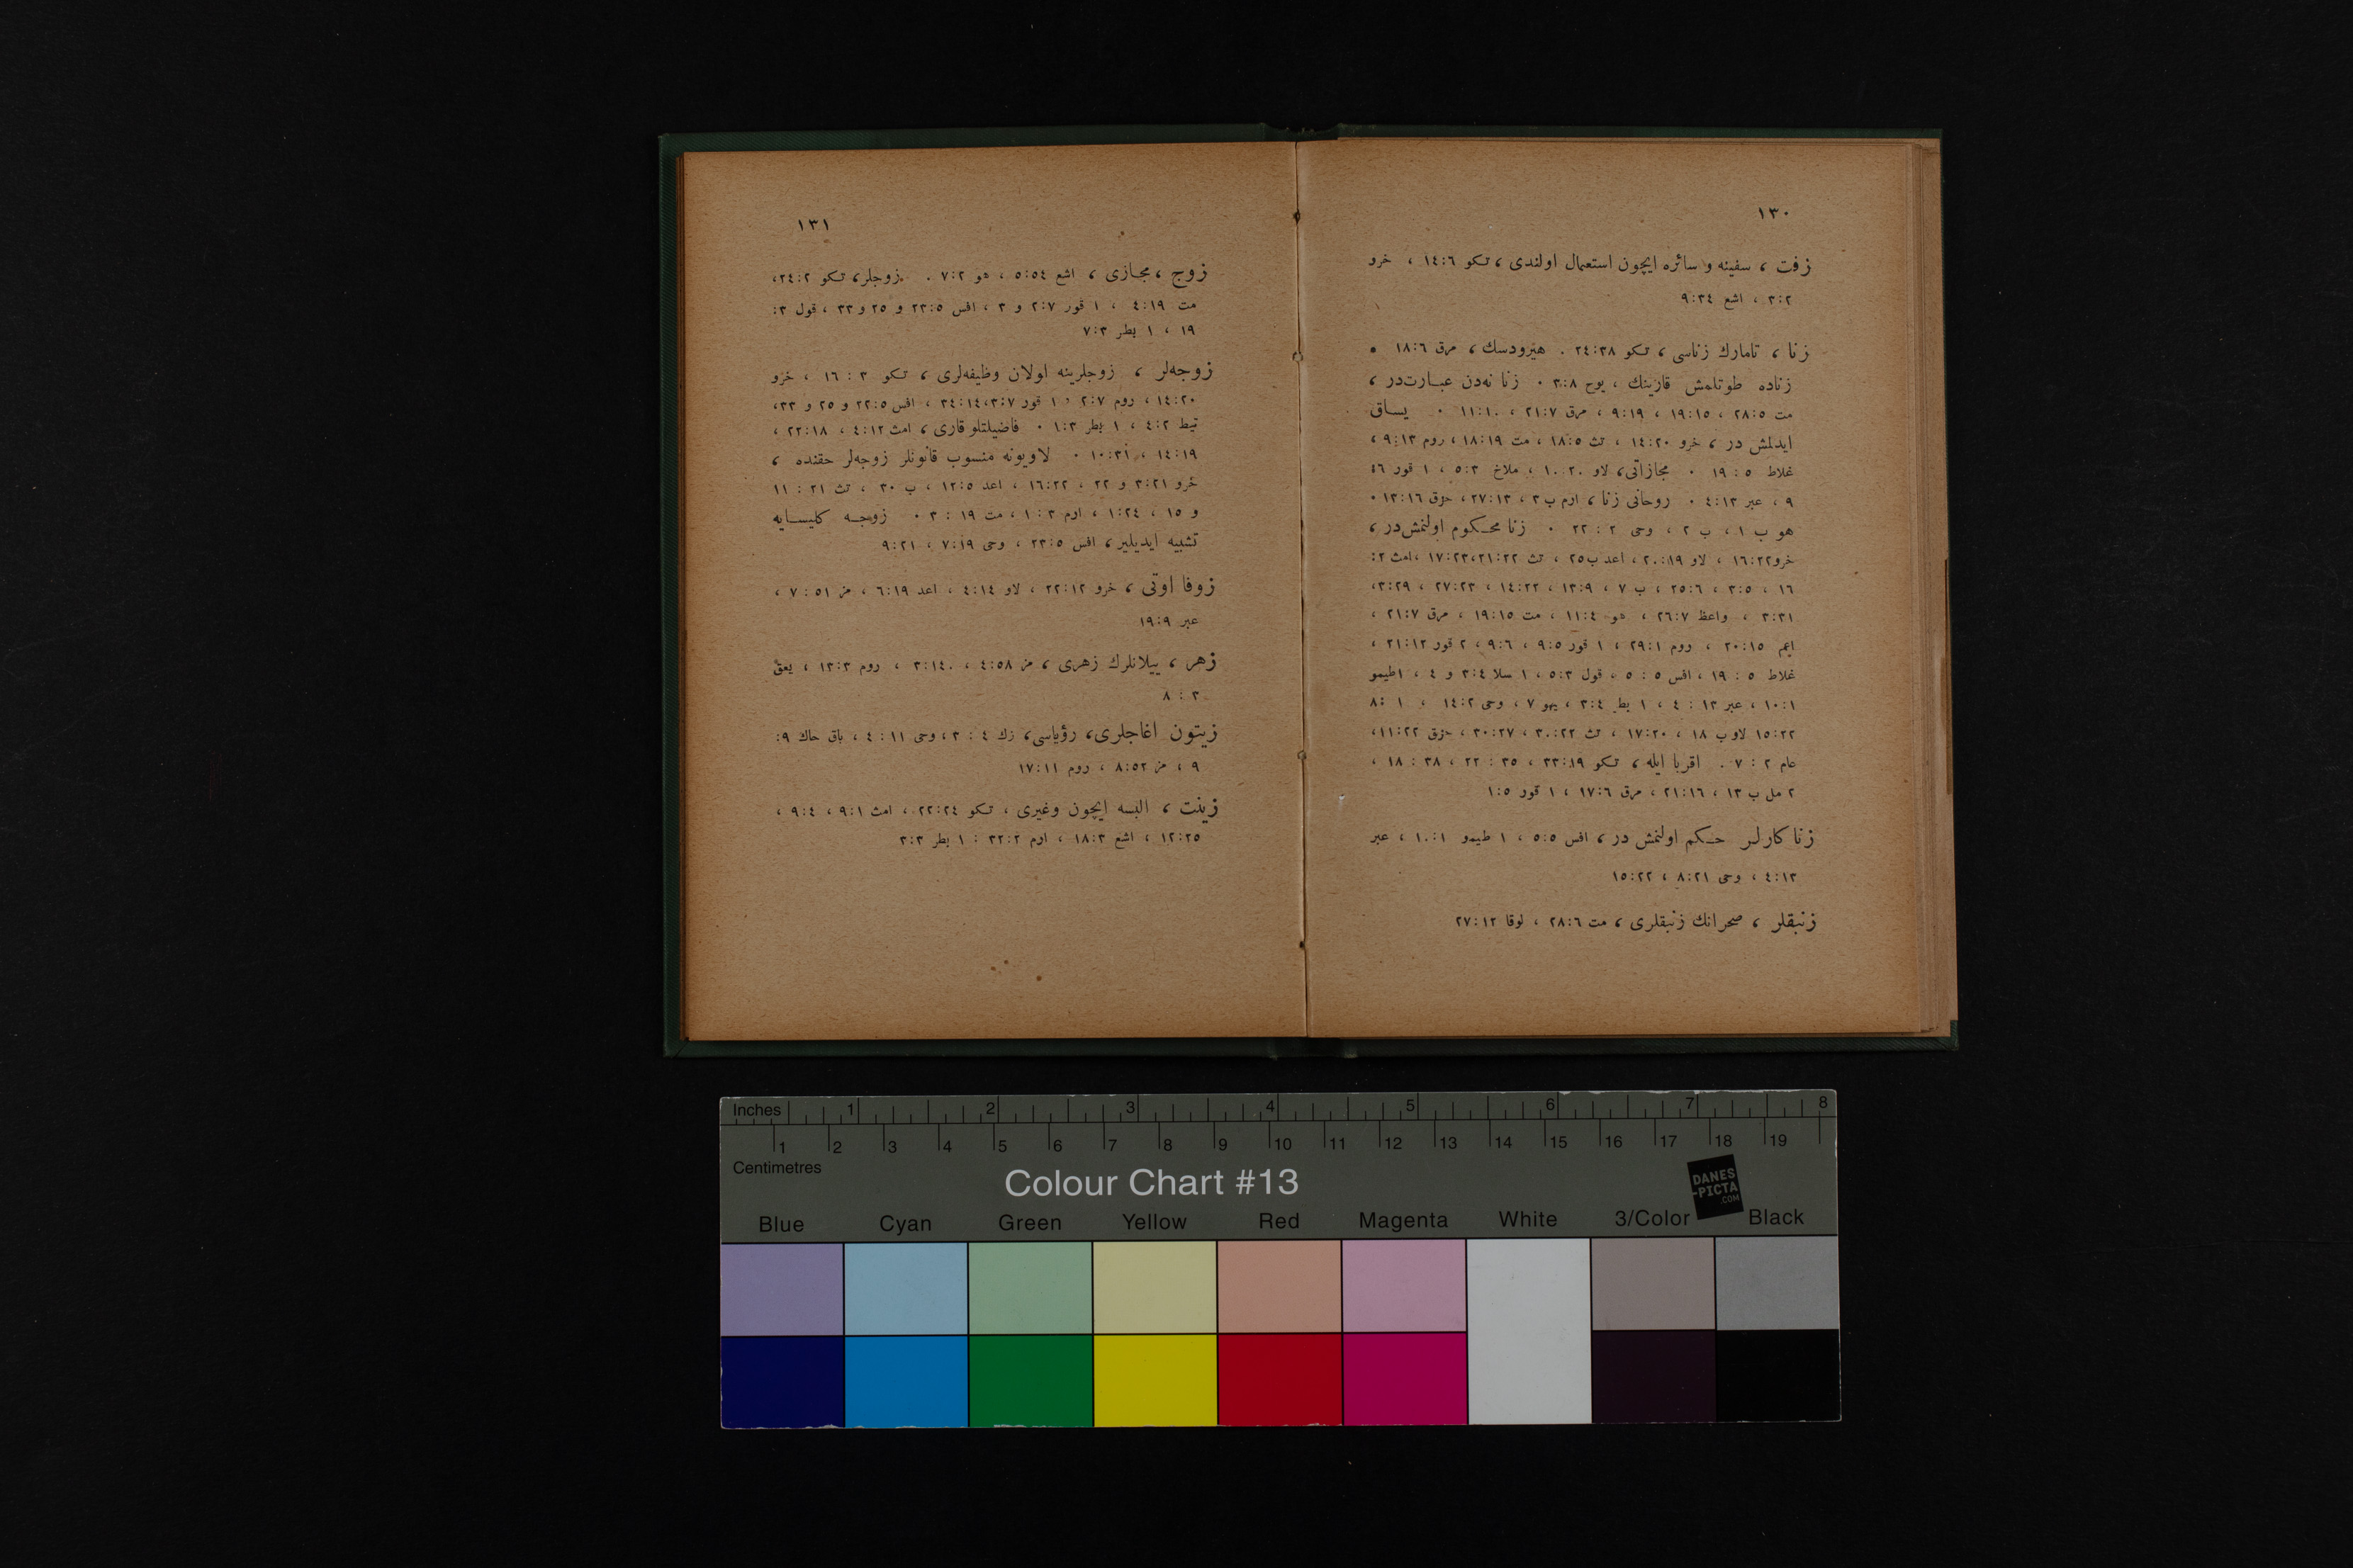 ١٣٠
زفت ، سفینه و سائره ایچون استعمال اولندی ، تکو ١٤:٦ ، خرو
٣:٢ ، اشع ٩:٣٤
زنا ، تامارك زناسی ، تکو ٢٤:٣٨ . هیرودسك ، مرق ١٨:٦ .
زناده طوتلمش قارینك ، یوح ٣:٨ . زنا نه‌دن عبارت‌در ،
مت ٢٨:٥ ، ١٩:١٥ ، ٩:١٩ ، مرق ٢١:٧ ، ١١:١٠ . یساق
ایدلمش در ، خرو ١٤:٢٠ ، تث ١٨:٥ ، مت ١٨:١٩ ، روم ٩:١٣ ،
غلاط ٥ : ١٩ . مجازاتی ، لاو ١٠:٢٠ ، ملاخ ٥:٣ ، ١ قور ٦:
٩ ، عبر ٤:١٣ . روحانی زنا ، ارم ب ٣ ، ٢٧:١٣ ، حزق ١٣:١٦ .
هو ب ١ ، ب ٢ ، وحی ٢ : ٢٢ . زنا محکوم اولنمش‌در ،
خرو ١٦:٢٢ ، لاو ٢٠:١٩ ، اعد ب ٢٥ ، تث ٢١:٢٢ ، ١٧:٢٣ ، امث ٢:
١٦ ، ٣:٥ ، ٢٥:٦ ، ب ٧ ، ١٣:٩ ، ١٤:٢٢ ، ٢٧:٢٣ ، ٣:٢٩ ،
٣:٣١ ، واعظ ٢٦:٧ ، هو ١١:٤ ، مت ١٩:١٥ ، مرق ٢١:٧ ،
ایم ٢٠:١٥ ، روم ٢٩:١ ، ١ قور ٩:٥ ، ٩:٦ ، ٢ قور ٢١:١٢ ،
غلاط ٥ : ١٩ ، افس ٥ : ٥ ، قول ٥:٣ ، ١ سلا ٣:٤ و ٤ ، ١طیمو
١٠:١ ، عبر ١٣ : ٤ ، ١ بط ٣:٤ ، یهو ٧ ، وحی ١٤:٢ ، ٨:٢١ ،
١٥:٢٢ لاو ب ١٨ ، ١٧:٢٠ ، تث ٣٠:٢٢ ، ٢٠:٢٧ ، حزق ١١:٢٢ ،
عام ٢ : ٧ . اقربا ایله ، تکو ٣٣:١٩ ، ٣٥ : ٢٢ ، ٣٨ : ١٨ ،
٢ مل ب ١٣ ، ٢١:١٦ ، مرق ١٧:٦ ، ١ قور ١:٥
زناکارلر حکم اولنمش در ، افس ٥:٥ ، ١ طیمو ١٠:١ ، عبر
٤:١٣ ، وحی ٨:٢١ ، ١٥:٢٢
زنبقلر ، صحرانك زنبقلری ، مت ٢٨:٦ ، لوقا ٢٧:١٢
١٣١
زوج ، مجازی ، اشع ٥:٥٤ ، هو ٧:٢ . زوجلر ، تکو ٢٤:٢ ،
مت ٤:١٩ ، ١ قور ٢:٧ و ٣ ، افس ٢٣:٥ و ٢٥ و ٣٣ ، قول ٣:
١٩ ، ١ بطر ٧:٣
زوجه‌لر ، زوجلرینه اولان وظیفه‌لری ، تکو ٣ : ١٦ ، خرو
١٤:٢٠ ، روم ٢:٧ ، ١ قور ٣:٧ ، ٣٤:١٤ ، افس ٢٢:٥ و ٢٥ و ٣٣ ،
تیط ٤:٢ ، ١ بطر ١:٣ . فاضیلتلو قاری ، امث ٤:١٢ ، ٢٢:١٨ ،
١٤:١٩ ، ١٠:٣١ . لاویونه منسوب قانونلر زوجه‌لر حقنده ،
خرو ٣:٢١ و ٢٢ ، ١٦:٢٢ ، اعد ١٢:٥ ، ب ٣٠ ، تث ٢١ : ١١
و ١٥ ، ١:٢٤ ، ارم ١:٣ ، مت ١٩ : ٣ . زوجه کلیسایه
تشبیه ایدیلیر ، افس ٢٣:٥ ، وحی ٧:١٩ ، ٩:٢١
زوفا اوتی ، خرو ٢٢:١٢ ، لاو ٤:١٤ ، اعد ٦:١٩ ، مز ٧:٥١ ،
عبر ١٩:٩
زهر ، ییلانلرك زهری ، مز ٤:٥٨ ، ٣:١٤٠ ، روم ١٣:٣ ، یعق
٣ : ٨
زیتون اغاجلری ، رؤیاسی ، زك ٤ : ٣ ، وحی ١١ : ٤ ، باق حاك ٩:
٩ ، مز ٨:٥٢ ، روم ١٧:١١
زینت ، البسه ایچون وغیری ، تکو ٢٢:٢٤ ، امث ٩:١ ، ٩:٤ ،
١٢:٢٥ ، اشع ١٨:٣ ، ارم ٣٢:٢ : ١ بطر ٣:٣
Inches 1 2 3 4 5 6 7 8
1 2 3 4 5 6 7 8 9 10 11 12 13 14 15 16 17 18 19
Centimetres
Colour Chart #13
DANES
-PICTA
.COM
Blue Cyan Green Yellow Red Magenta White 3/Color Black